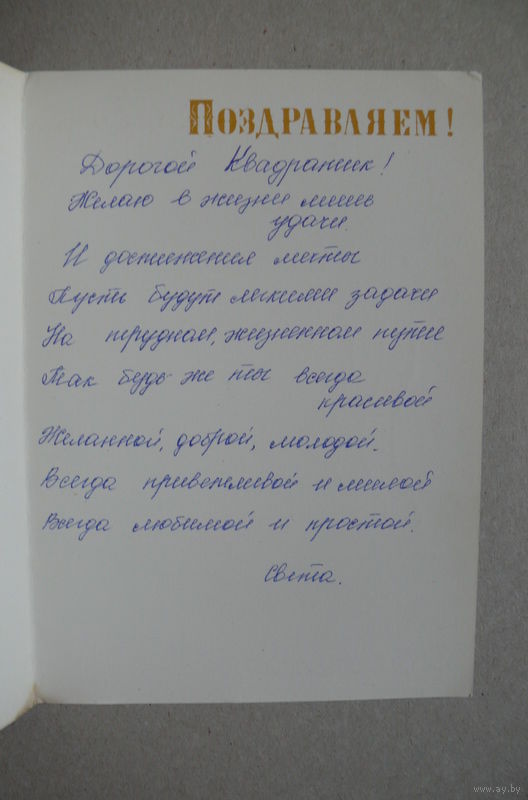 ПОЗДРАВЛЯЕМ!
Дорогой Квадратик!
Желаю в жизни лишь
удачи.
И достижения мечты
Пусть будут легкими задачи
На трудном, жизненном пути
Так будь же ты всегда
красивой
Желанной, доброй, молодой.
Всегда приветливой и милой
Всегда любимой и простой.
Света.
www.ay.by